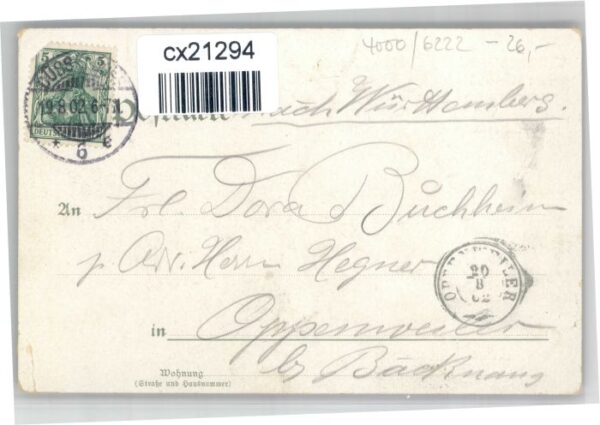 cx21294
4000/6222 - 26,-
5 5
19.8.02.6-7
DEUTSCH
* 6 e
nach Württemberg.
An Frl. Dora Buchheim
p. Adr. Herrn Hegner
in Oppenweiler
b/ Backnang
Wohnung
(Straße und Hausnummer)
OPPENWEILER
20
8
02